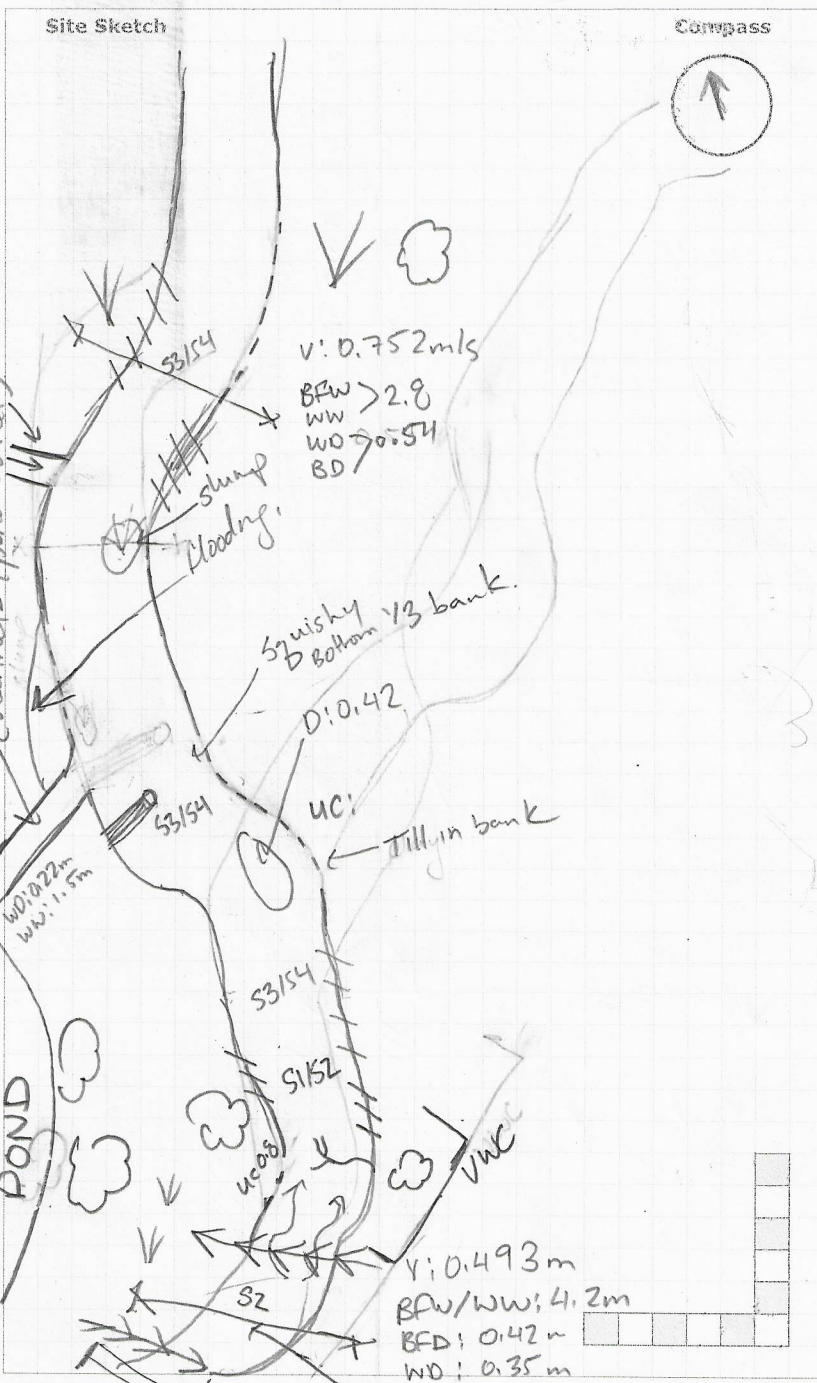 Site Sketch
Compass
S3/S4
V: 0.752m/s
BFW
WW >2.8
WD >0.54
BD
slump
flooding.
Squishy
Bottom 1/3 bank.
D: 0.42
UC:
S3/S4
Till in bank
WD: 0.22m
WW: 1.5m
slump
S3/S4
S1/S2
POND
UC 0.8
VWC
V: 0.493m
BFW/WW: 4.2m
S2
BFD: 0.42m
WD: 0.35m